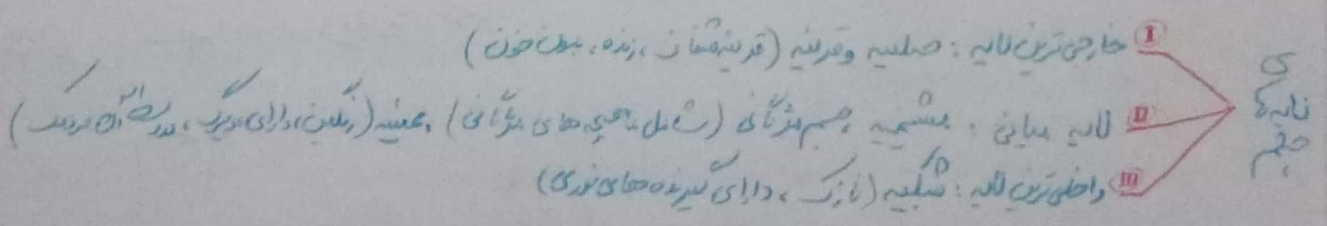 لایه های چشم
I خارجی ترین لایه: صلبیه و قرنیه (قرنیه شفاف، زنده، بدون خون)
II لایه میانی: مشیمیه، جسم مژگانی (شامل ماهیچه های مژگانی)، عنبیه (رنگین، دارای، وسط آن مردمک)
III داخلی ترین لایه: شبکیه (نازک، دارای گیرنده های نوری)